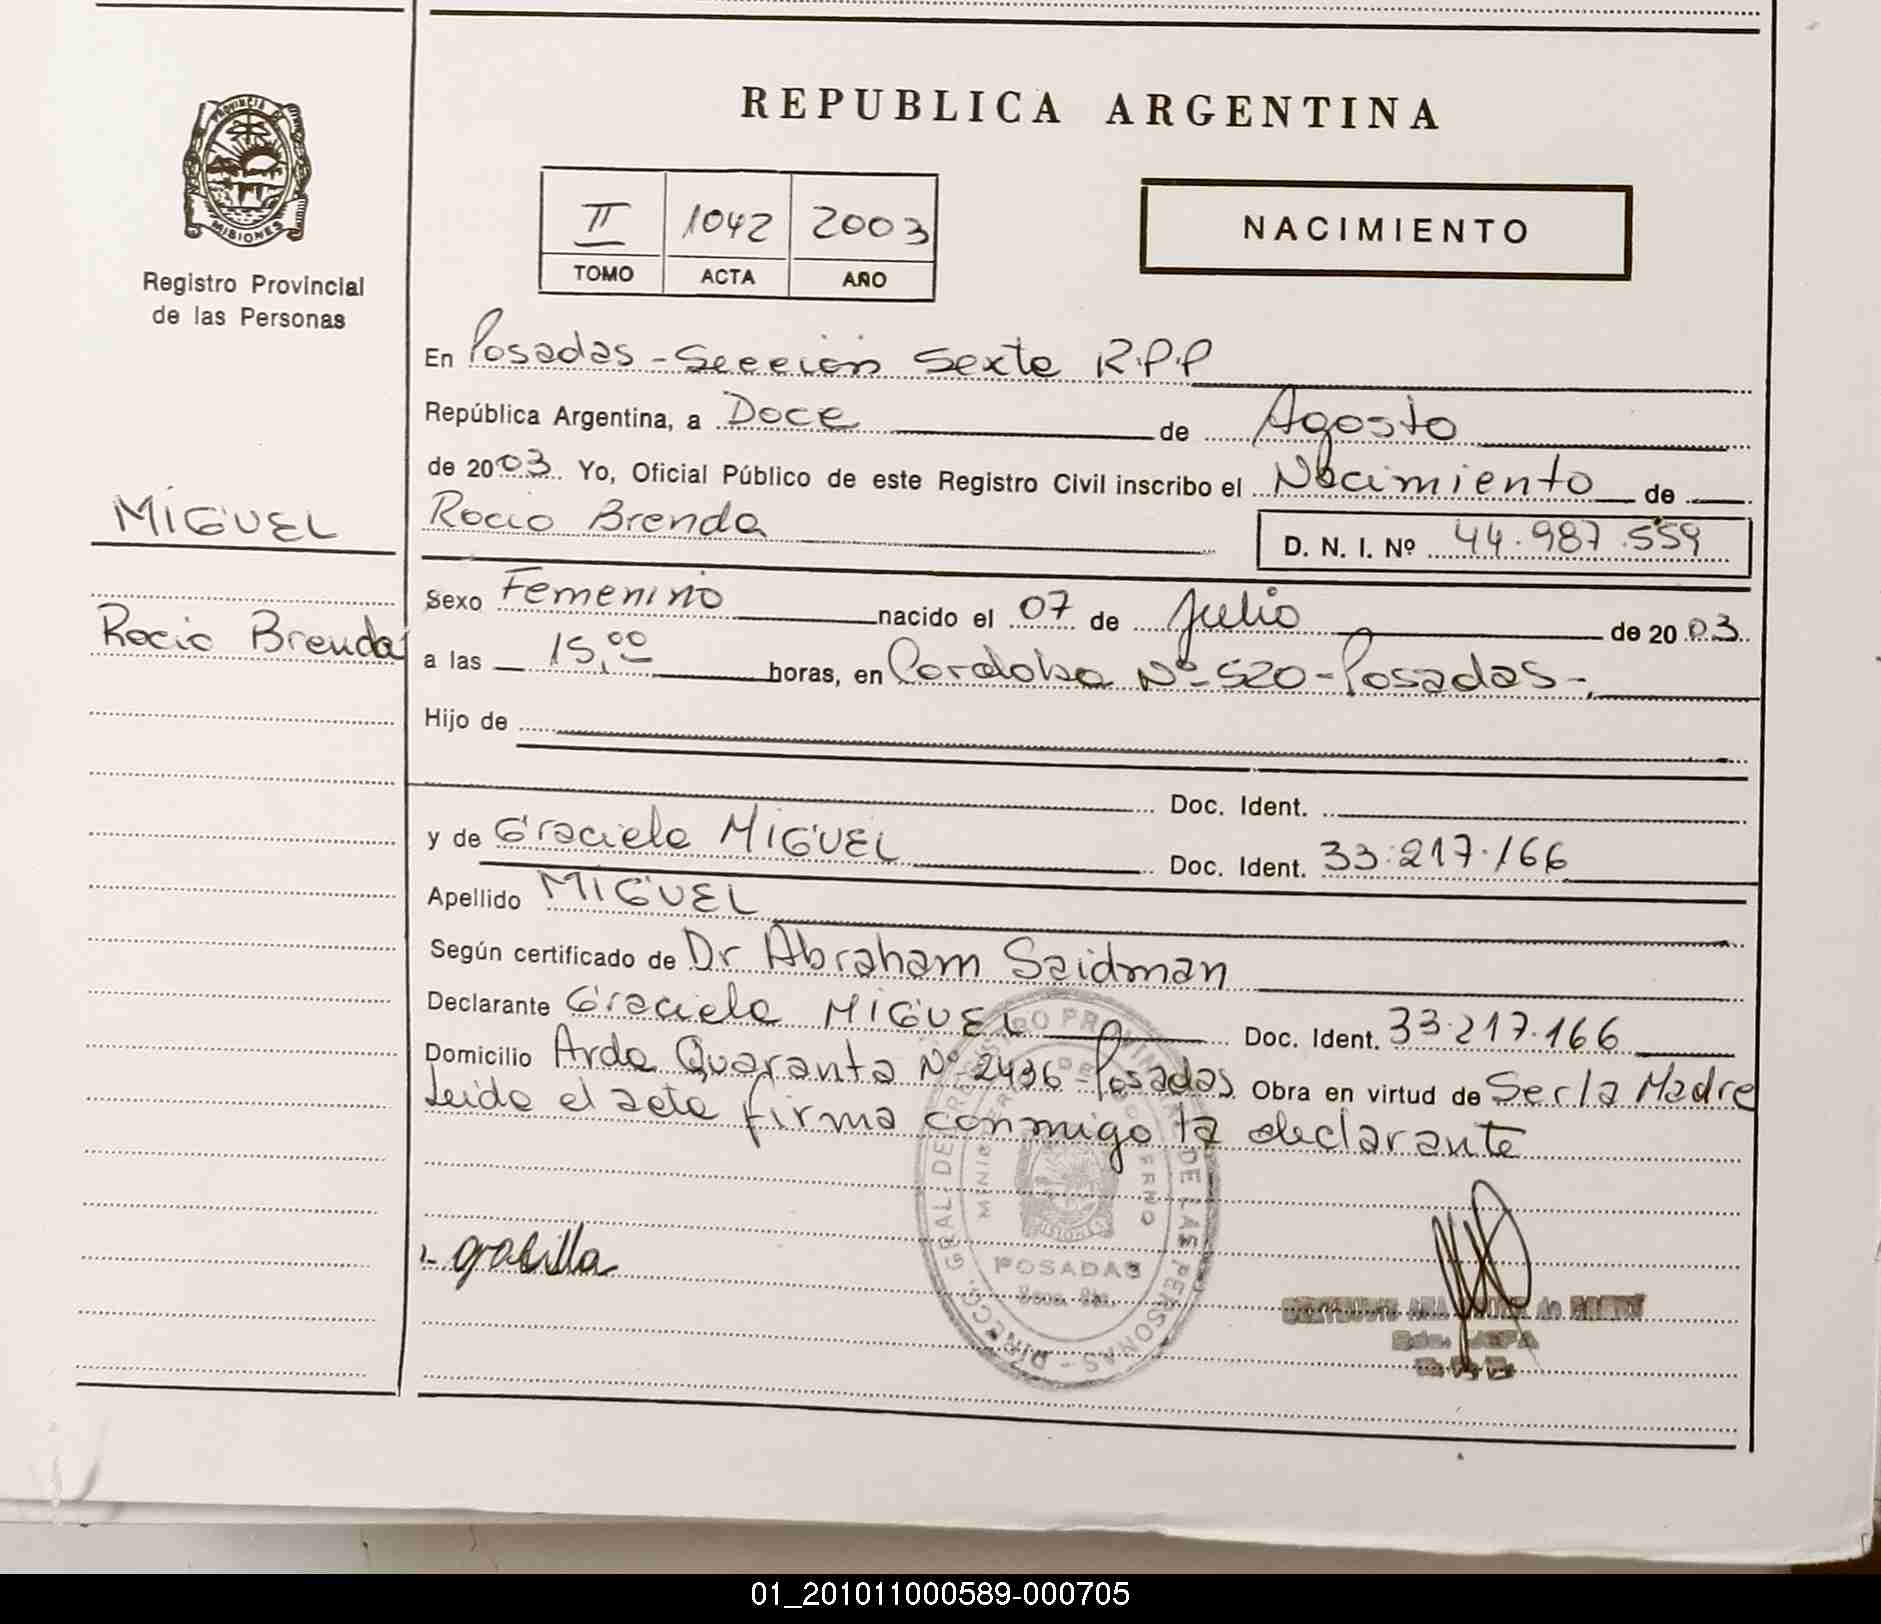 PROVINCIA D
MISIONES
Registro Provincial
de las Personas
MIGUEL
Rocio Brenda
REPUBLICA ARGENTINA
II 1042 2003
TOMO ACTA AÑO
NACIMIENTO
En Posadas - Sección Sexta R.P.P
República Argentina, a Doce de Agosto
de 2003. Yo, Oficial Público de este Registro Civil inscribo el Nacimiento de
Rocio Brenda D. N. I. Nº 44.987.559
Sexo Femenino nacido el 07 de Julio de 2003.
a las 15,00 horas, en Cordoba Nº 520 - Posadas -.
Hijo de
Doc. Ident.
y de Graciela MIGUEL Doc. Ident. 33.217.166
Apellido MIGUEL
Según certificado de Dr Abraham Saidman
Declarante Graciela MIGUEL Doc. Ident. 33.217.166
Domicilio Avda Quaranta Nº 2436 - Posadas. Obra en virtud de Ser la Madre
Leida el acta firma conmigo la declarante
DIRECC. GRAL. DE REGISTRO PROVINCIAL DE LAS PERSONAS
POSADAS
01_201011000589-000705